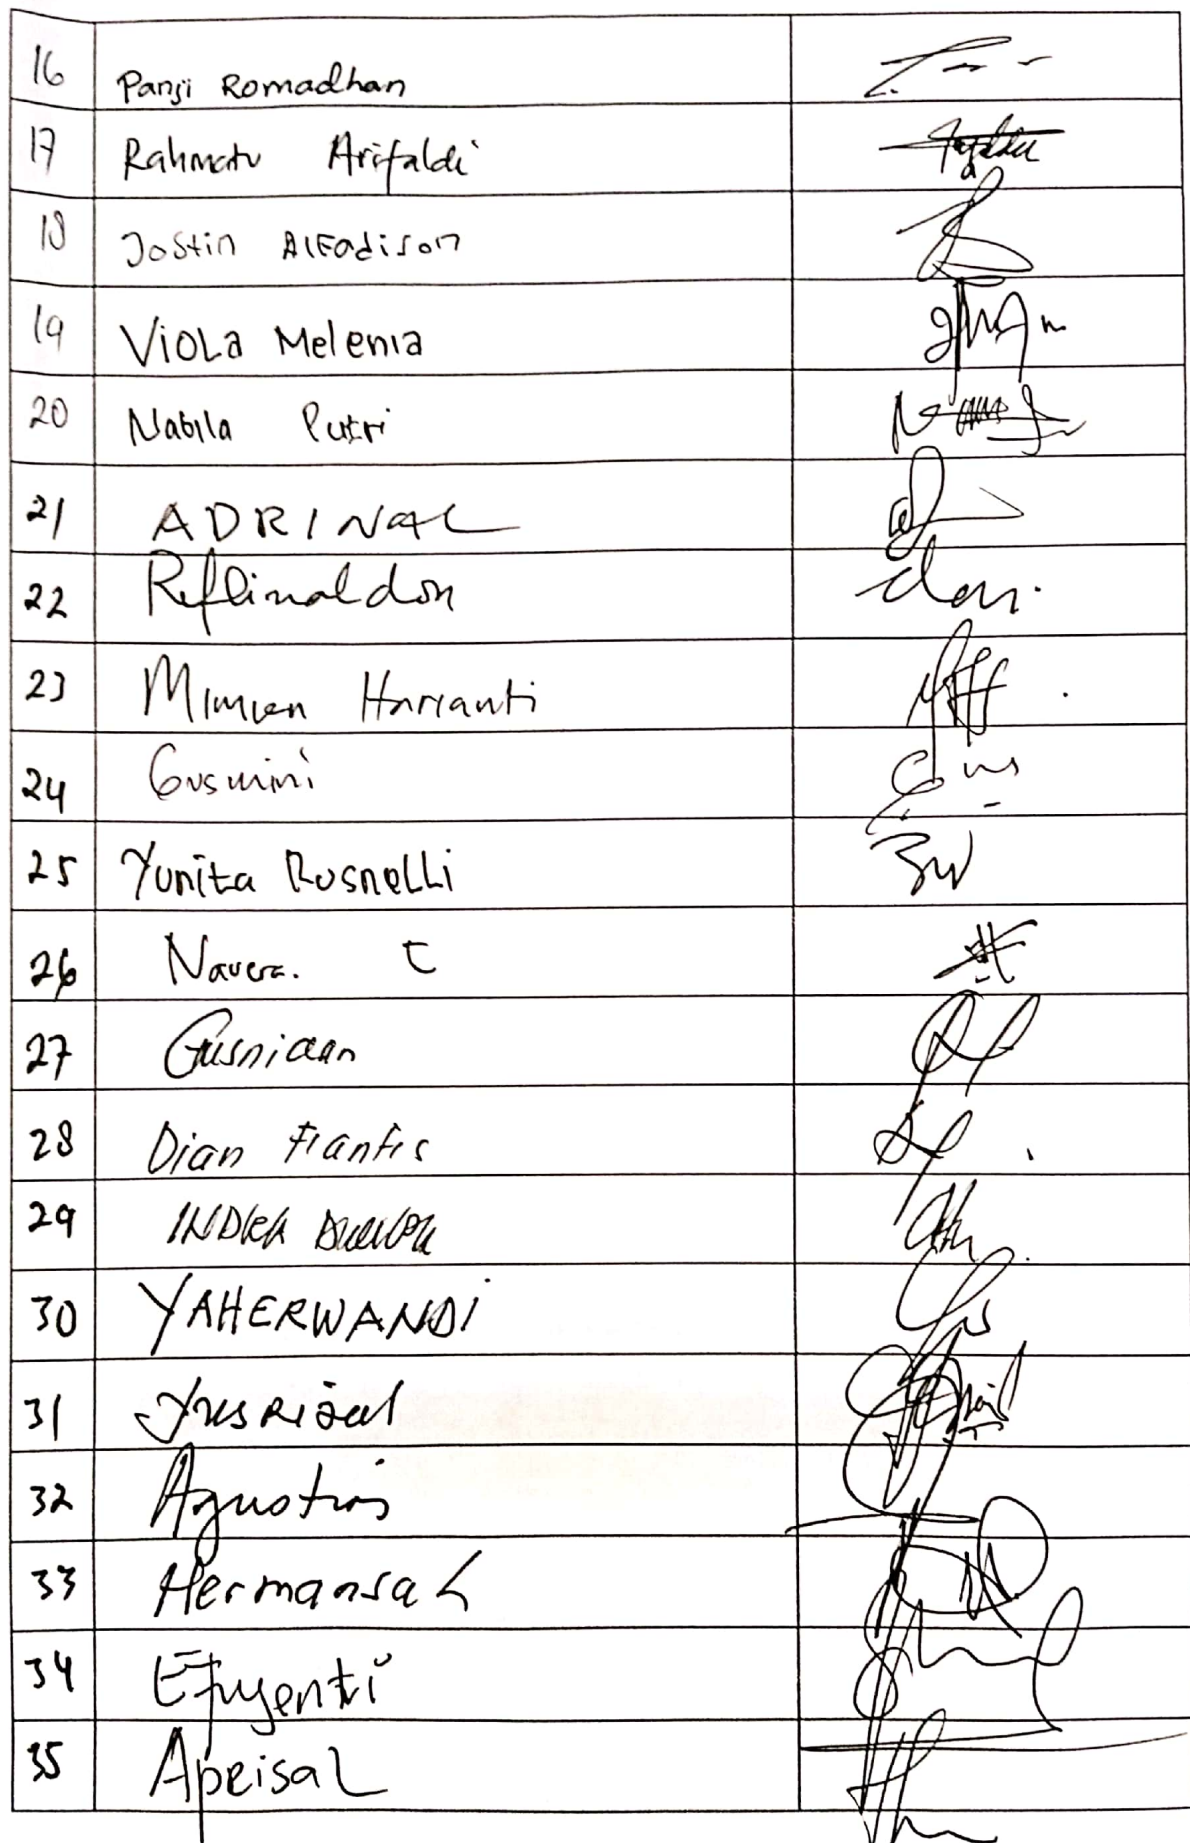 16 Panji Romadhan
17 Rahmatu Arifaldi
18 Jostin AlFadison
19 Viola Melenia
20 Nabila Putri
21 ADRINAL
22 Reflinaldon
23 Mimien Harianti
24 Gusmini
25 Yunita Rusnelli
26 Navera. E
27 Gusniaan
28 Dian Fiantis
29 INDRA
30 YAHERWANDI
31 Yusrizal
32 Agustins
33 Hermansah
34 Efuyenti
35 Aprisal